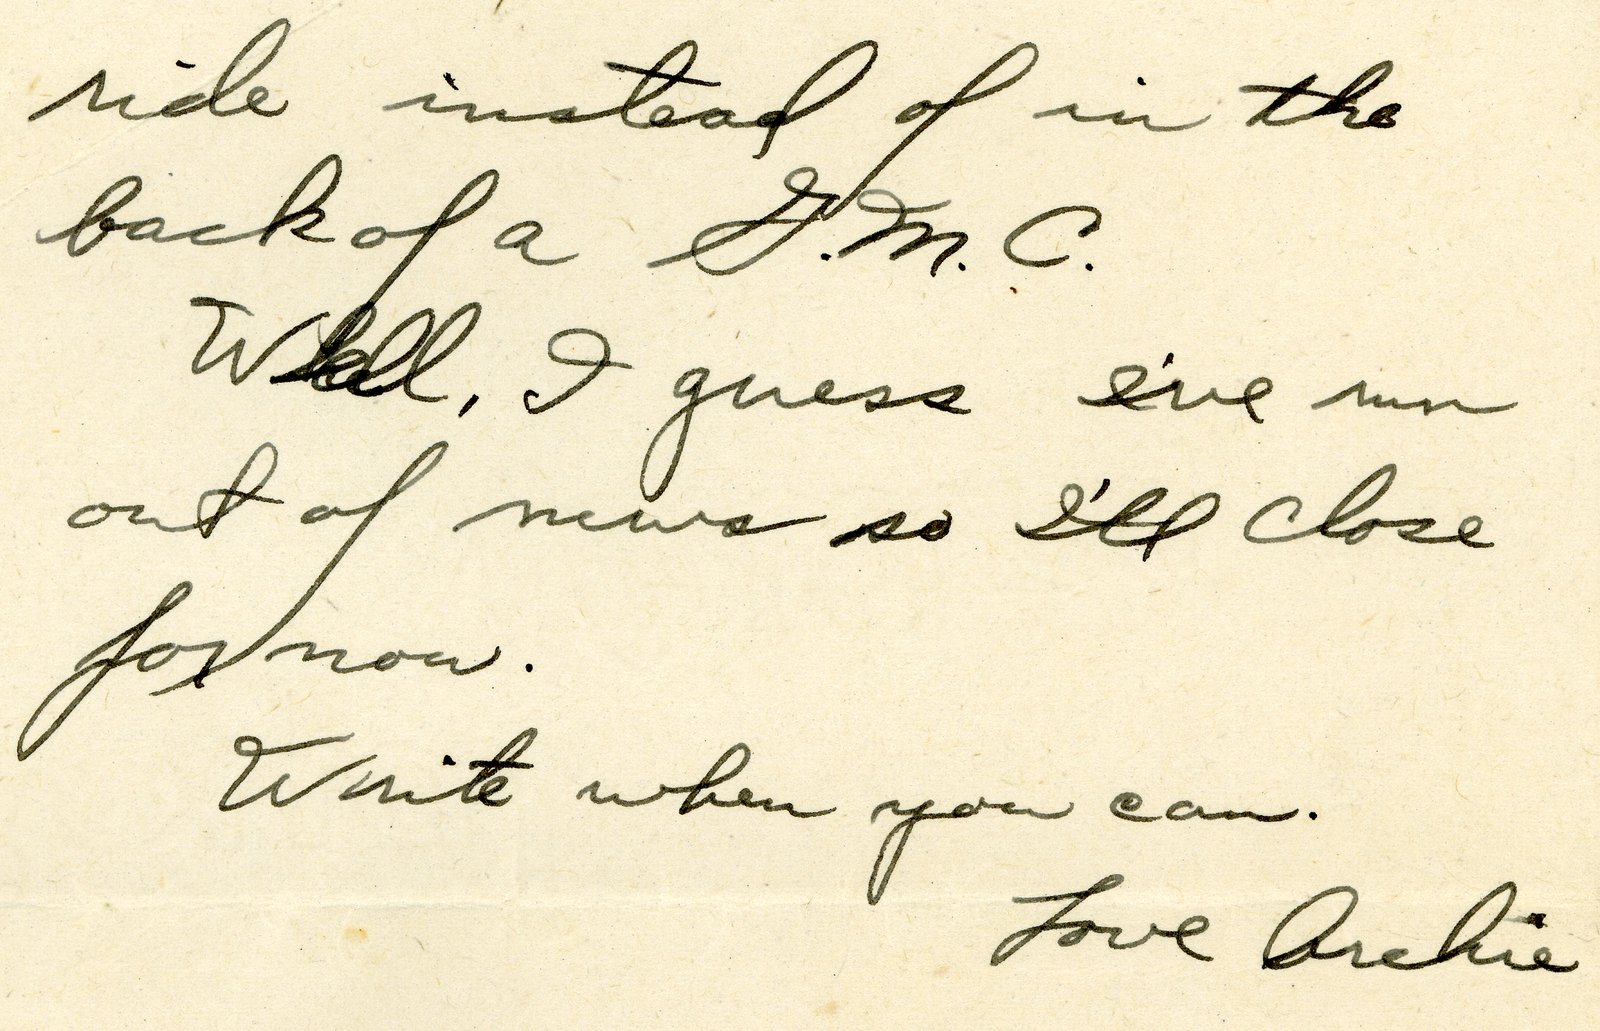 ride instead of in the
back of a G.M.C.
Well, I guess I've run
out of news so I'll close
for now.
Write when you can.
Love Archie